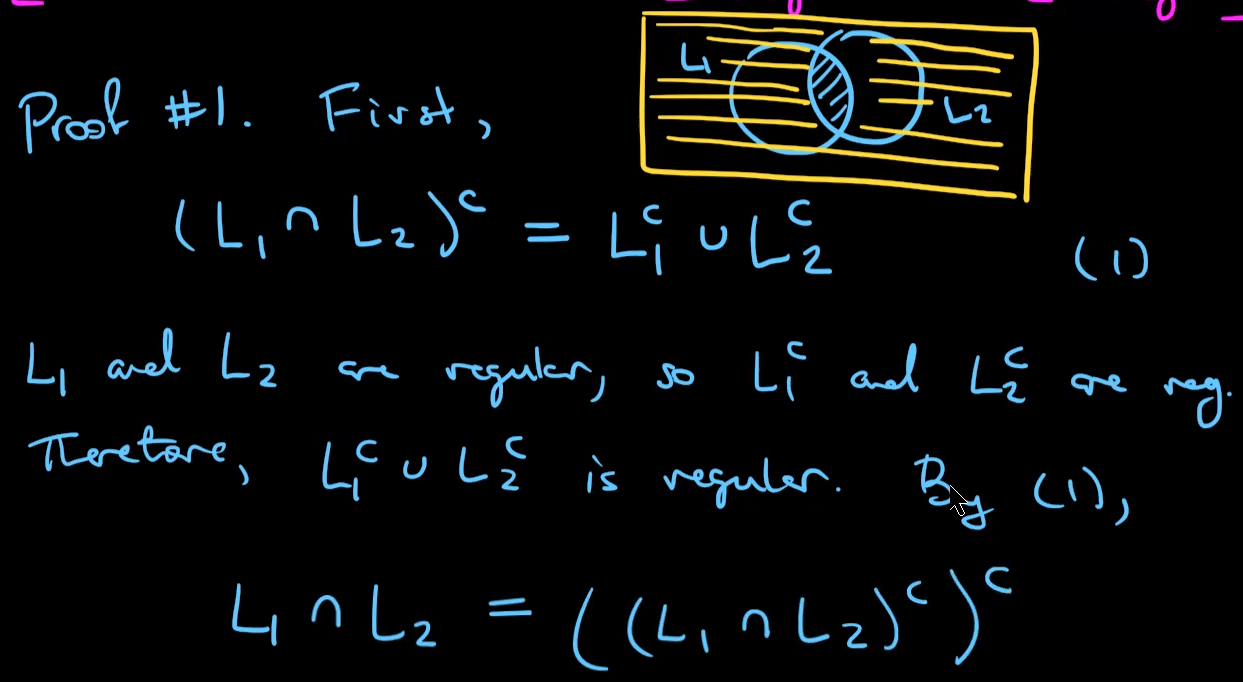 L₁
L₂
Proof #1. First,
(L₁ ∩ L₂)ᶜ = L₁ᶜ ∪ L₂ᶜ (1)
L₁ and L₂ are regular, so L₁ᶜ and L₂ᶜ are reg.
Therefore, L₁ᶜ ∪ L₂ᶜ is regular. By (1),
L₁ ∩ L₂ = ((L₁ ∩ L₂)ᶜ)ᶜ